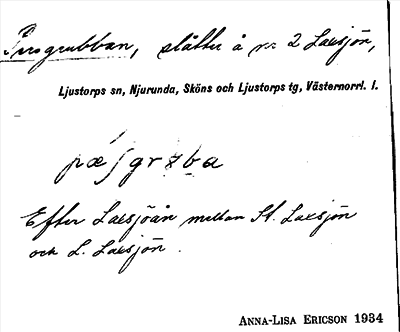 Persgrubban, slåtter å nr 2 Laxsjön,
Ljustorps sn, Njurunda, Sköns och Ljustorps tg, Västernorrl. l.
Efter Laxsjöån mellan St. Laxsjön
och L. Laxsjön.
ANNA-LISA ERICSON 1934